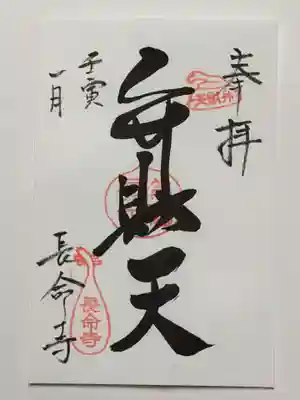 奉拝
弁財天
壬寅
一月
長命寺
長命寺